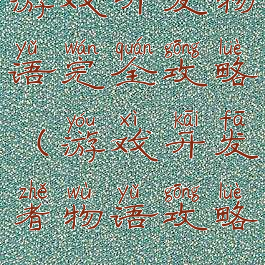 游戏开发物
yǔ wán quán gōng lüè
语完全攻略
yóu xì kāi fā
（游戏开发
zhě wù yǔ gōng lüè
者物语攻略